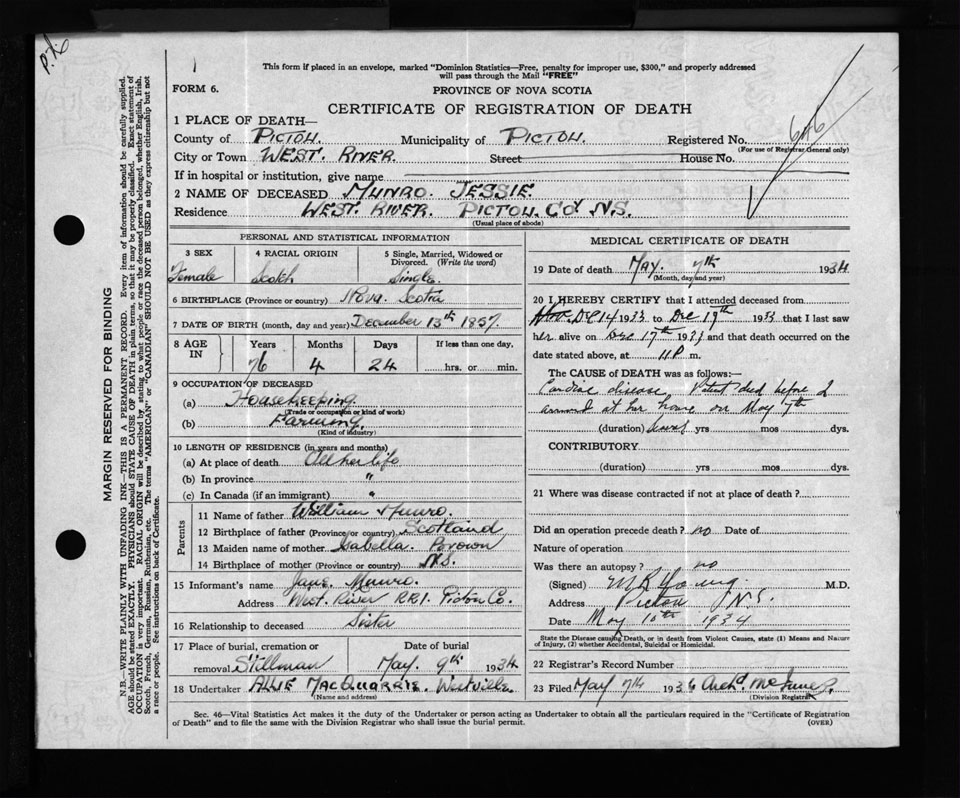 P.N.
1
This form if placed in an envelope, marked "Dominion Statistics—Free, penalty for improper use, $300," and properly addressed
will pass through the Mail "FREE"
FORM 6.
PROVINCE OF NOVA SCOTIA
CERTIFICATE OF REGISTRATION OF DEATH
1 PLACE OF DEATH—
County of PICTOU. Municipality of PICTOU. Registered No. 646
(For use of Registrar General only)
City or Town WEST. RIVER. Street House No.
If in hospital or institution, give name
2 NAME OF DECEASED MUNRO. JESSIE.
Residence WEST. RIVER. PICTOU. Co. N.S.
(Usual place of abode)
PERSONAL AND STATISTICAL INFORMATION
3 SEX 4 RACIAL ORIGIN 5 Single, Married, Widowed or
Divorced. (Write the word)
Female Scotch Single.
6 BIRTHPLACE (Province or country) Nova. Scotia
7 DATE OF BIRTH (month, day and year) December 13th 1857.
8 AGE IN Years Months Days If less than one day,
76 4 24 hrs. or min.
9 OCCUPATION OF DECEASED
(a) Housekeeping
(Trade or occupation or kind of work)
(b) Farming.
(Kind of industry)
10 LENGTH OF RESIDENCE (in years and months)
(a) At place of death All her life
(b) In province "
(c) In Canada (if an immigrant) "
Parents
11 Name of father William Munro.
12 Birthplace of father (Province or country) Scotland
13 Maiden name of mother Isabella. Brown
14 Birthplace of mother (Province or country) N.S.
15 Informant's name Jane Munro.
Address West. River RR1. Pictou Co.
16 Relationship to deceased Sister
17 Place of burial, cremation or Date of burial
removal Stillman May. 9th 1934
18 Undertaker ALLIE MACQUARRIE. Westville.
(Name and address)
MEDICAL CERTIFICATE OF DEATH
19 Date of death MAY. 7th 1934
(Month, day and year)
20 I HEREBY CERTIFY that I attended deceased from
Dec 14 1933 to Dec 19th 1933 that I last saw
her alive on Dec 17th 1933 and that death occurred on the
date stated above, at 11 P m.
The CAUSE of DEATH was as follows:—
Cardiac disease Patient died before I
arrived at her home on May 7th
(duration) yrs mos dys.
CONTRIBUTORY
(duration) yrs mos dys.
21 Where was disease contracted if not at place of death?
Did an operation precede death? no Date of
Nature of operation
Was there an autopsy? no
(Signed) M R Young M.D.
Address Pictou N.S.
Date May 10th 1934
State the Disease causing Death, or in death from Violent Causes, state (1) Means and Nature
of Injury, (2) whether Accidental, Suicidal or Homicidal.
22 Registrar's Record Number
23 Filed May 7th 1936 Arch'd
(Division Registrar)
Sec. 46—Vital Statistics Act makes it the duty of the Undertaker or person acting as Undertaker to obtain all the particulars required in the "Certificate of Registration
of Death" and to file the same with the Division Registrar who shall issue the burial permit. (OVER)
MARGIN RESERVED FOR BINDING
N.B.—WRITE PLAINLY WITH UNFADING INK—THIS IS A PERMANENT RECORD. Every item of information should be carefully supplied.
AGE should be stated EXACTLY. PHYSICIANS should STATE CAUSE OF DEATH in plain terms, so that it may be properly classified. Exact statement of
OCCUPATION is very important. RACIAL ORIGIN will be described by stating to what people or race the deceased person belonged, whether English, Irish,
Scotch, French, German, Russian, Ruthenian, etc. The terms "AMERICAN" or "CANADIAN" SHOULD NOT BE USED as they express citizenship but not
a race or people. See instructions on back of Certificate.